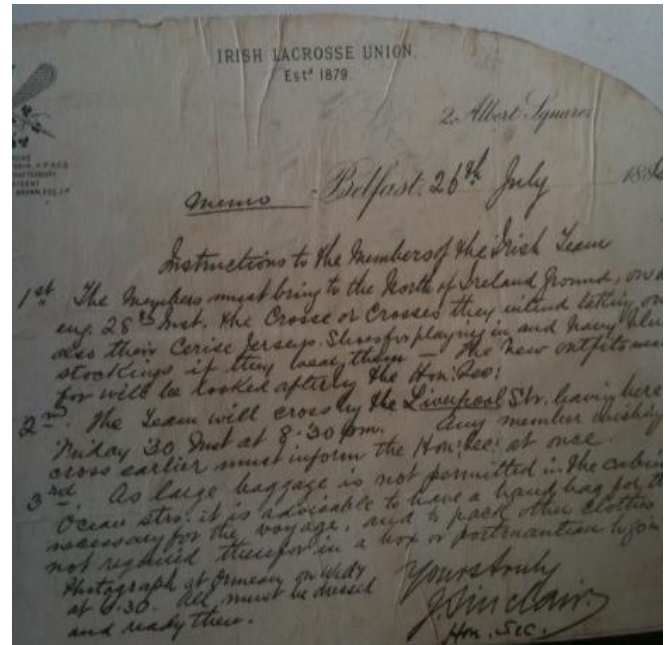 IRISH LACROSSE UNION.
Estd 1879.
2, Albert Square,
PRESIDENT
Memo Belfast, 26th July 188
Instructions to the Members of the Irish Team
1st The Members must bring to the North of Ireland Ground, on
evg. 28th Inst. the Crosse or Crosses they intend taking
also their Cerise Jerseys. Shoes for playing in and Navy Blue
stockings if they have them – The new outfits
for will be looked after by the Hon: Sec:
2nd. The Team will cross by the Liverpool Str. leaving here
Friday 30 Inst at 8.30 pm. Any member wishing
cross earlier must inform the Hon: Sec: at once.
3rd. As large baggage is not permitted in the cabin
Ocean strs. it is advisable to have a hand bag for
necessary for the voyage, and to pack other clothes
not required therefor in a box or portmanteau to go in
Photograph at Ormeau on Wedy
at 6.30. All must be dressed
and ready then.
Yours truly
J. Sinclair.
Hon. Sec.